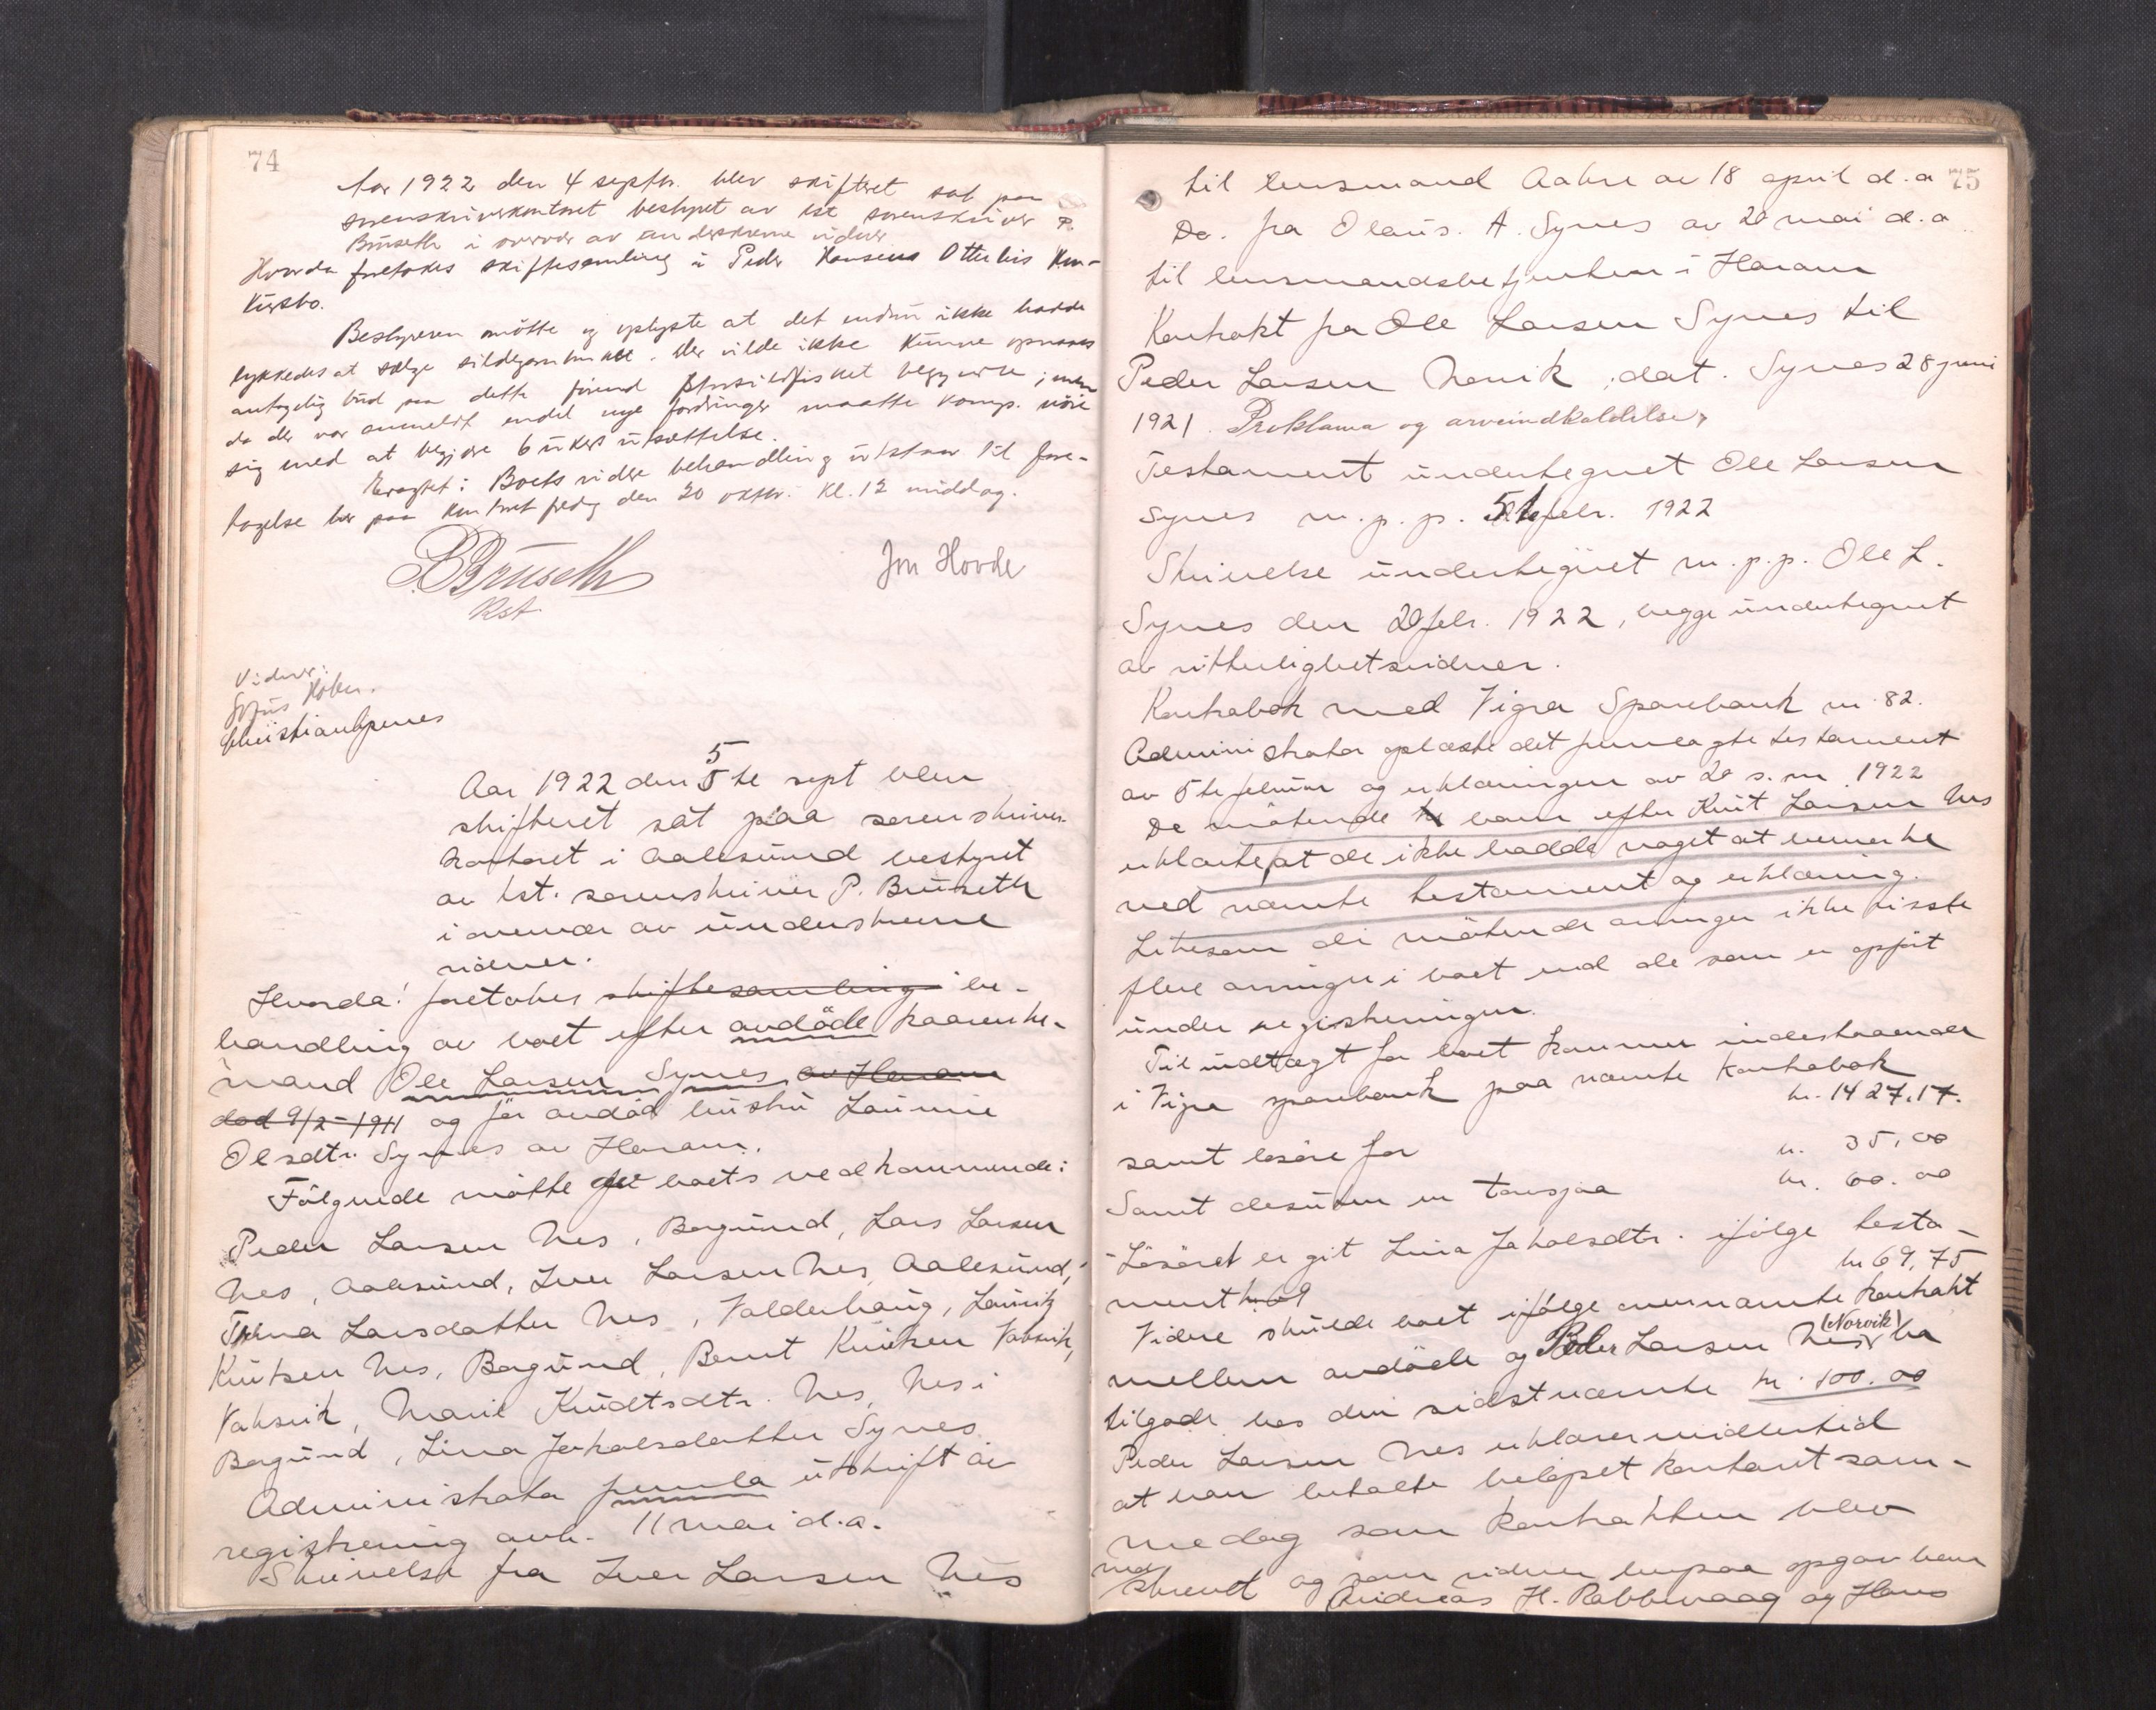 74
Aar 1922 den 4 septbr. blev skifteret sat paa
sorenskriverkontoret bestyret av kst sorenskriver P.
Brüseth i overvær av underskrevne vidner
Hvorda foretokes skiftesamling i Peder Hansens Otterleis kon-
kürsbo.
Bestyreren mötte og oplyste at det endnü ikke hadde
lykkedes at sælge sildegarnbruket. Der vilde ikke künne opnaaes
antagelig büd paa dette förend storsildfisket begynder; men
da der var anmeldt endel nye fordringer maatte komp. nöie
sig med at begjære 6 ükers ütsættelse.
Eragtet: Boets videre behandling ütstaar til fore-
tagelse her paa kontoret fredag den 20 oktbr. kl. 12 middag.
P. Brüseth
Kst
Jon Hovde
Vidner:
Christian Gjernes
Aar 1922 den 5te sept blev
5
skifteret sat paa sorenskriver-
kontoret i Aalesünd bestyret
av kst. sorenskriver P. Brüseth
i overvær av ünderskrevne
vidner.
Hvorda! foretokes skiftesamling i be-
handling av boet efter avdöde kaarenke-
mand Ole Larsen Synes av Haram
död 9/2-1911 og för avdöd hüstrü Laürine
Olsdtr. Synes av Haram.
Fölgende mötte for boets vedkommende:
Peder Larsen Nes, Borgünd, Lars Larsen
Nes, Aalesünd, Iver Larsen Nes Aalesünd,
Larsdatter Nes, Valderhaüg, Laüritz
Knütsen Nes, Borgünd, Bernt Knütsen Vatsvik,
Vatsvik, Marie Knüdtsdtr. Nes, Nes i
Borgünd, Lina Jakobsdatter Synes
Administrator fremla ütskrift av
registrering avh. 11 mai d.a.
Skrivelse fra Iver Larsen Nes
75
til lensmand Aakre av 18 april d.a
Do. fra Olaüs. A. Synes av 20 mai d.a
til lensmandsbetjenten i Haram
Kontrakt fra Ole Larsen Synes til
Peder Larsen Norvik, dat. Synes 28 juni
1921. Proklama og arveindkaldelse,
Testament ündertegnet Ole Larsen
Synes m.p.p. 5te febr. 1922
Skrivelse ündertegnet m.p.p. Ole L.
Synes den 20 febr. 1922, begge ündertegnet
av vitterlighetsvidner.
Kontrabok med Vigra Sparebank nr. 82.
Administrator oplæste det fremlagte testament
av 5te febrüar og erklæringen av 20 s.m. 1922
De mötende barn efter Knüt Larsen Nes
erklærte, at de ikke hadde noget at bemerke
ved nævnte testament og erklæring.
Likesom de mötende arvinger ikke visste
flere arvinger i boet end de som er opfört
ünder registreringen.
Til indtægt for boet kommer indestaaende
i Vigra sparebank paa nævnte kontrabok
kr. 1427.17.
samt lösöre for kr. 35,00
Samt desüten en torvsjaa kr. 60.00
Lösöret er git Lina Jakobsdtr. ifölge testa-
ment kr. 69 kr 69,75
Videre skülde boet ifölge ovennævnte kontrakt
mellem avdöde og Peder Larsen Nes (Norvik) ha
tilgode hos den sidstnævnte kr. 100.00
Peder Larsen Nes erklærer midlertid
at han betalte belöpet kontant sam-
medag som kontrakten blev
ned
skrevet og som vidner herpaa opgav han
Andreas H. Rabbevaag og Hans